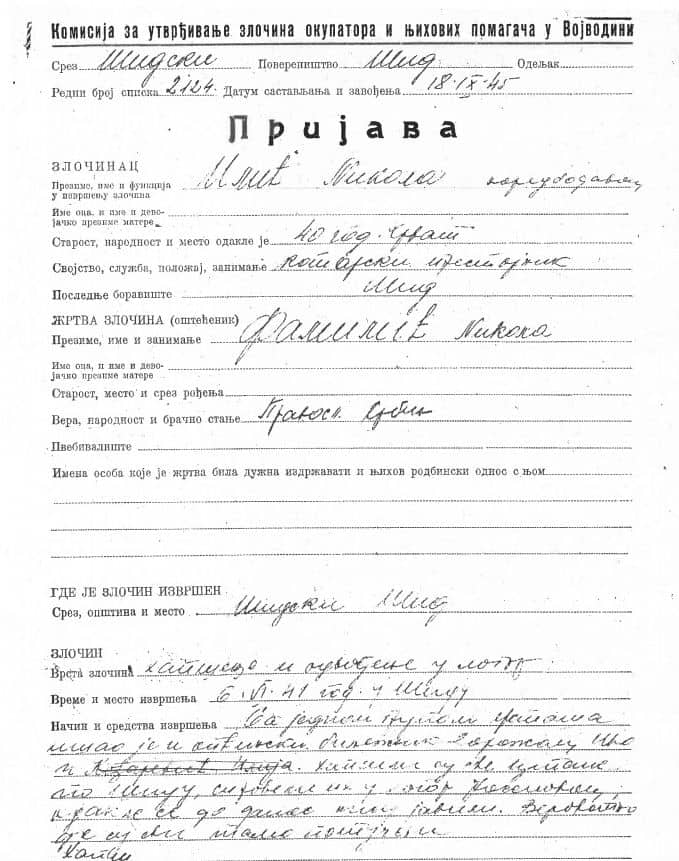 Комисија за утврђивање злочина окупатора и њихових помагача у Војводини
Срез Шидски Повереништво Шид Одељак
Редни број списка 2124. Датум састављања и завођења 18-IX-45
Пријава
ЗЛОЧИНАЦ
Презиме, име и функција у извршењу злочина Илић Никола наредбодавац
Име оца, и име и девојачко презиме матере
Старост, народност и место одакле је 40 год. Хрват
Својство, служба, положај, занимање Котарски престојник
Последње боравиште Шид
ЖРТВА ЗЛОЧИНА (оштећеник)
Презиме, име и занимање Фамилић Никола
Име оца, и име и девојачко презиме матере
Старост, место и срез рођења
Вера, народност и брачно стање Правосл. Србин
Пвебивалиште
Имена особа које је жртва била дужна издржавати и њихов родбински однос с њом
ГДЕ ЈЕ ЗЛОЧИН ИЗВРШЕН
Срез, општина и место Шидски Шид
ЗЛОЧИН
Врста злочина хапшење и одвођење у логор
Време и место извршења 6.VI.41 год. у Шиду
Начин и средства извршења Са једном групом усташа
ишао је и општински бележник
и Илија. Хапсили су
по Шиду, их у логор
и до данас нису јавили. Вероватно
да су сви тамо